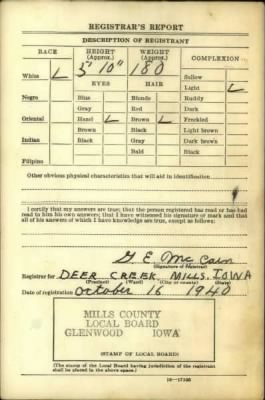 REGISTRAR'S REPORT
DESCRIPTION OF REGISTRANT
RACE HEIGHT (Approx.) WEIGHT (Approx.) COMPLEXION
5' 10" 180
White L Sallow
EYES HAIR Light L
Negro Blue Blonde Ruddy
Gray Red Dark
Oriental Hazel L Brown L Freckled
Brown Black Light brown
Indian Black Gray Dark brown
Bald Black
Filipino
Other obvious physical characteristics that will aid in identification
I certify that my answers are true; that the person registered has read or has had
read to him his own answers; that I have witnessed his signature or mark and that
all of his answers of which I have knowledge are true, except as follows:
G. E. McCain
(Signature of registrar)
Registrar for DEER CREEK MILLS, IOWA
(Precinct) (Ward) (City or county) (State)
Date of registration October 16 1940
MILLS COUNTY
LOCAL BOARD
GLENWOOD IOWA
(STAMP OF LOCAL BOARD)
(The stamp of the Local Board having jurisdiction of the registrant
shall be placed in the above space.)